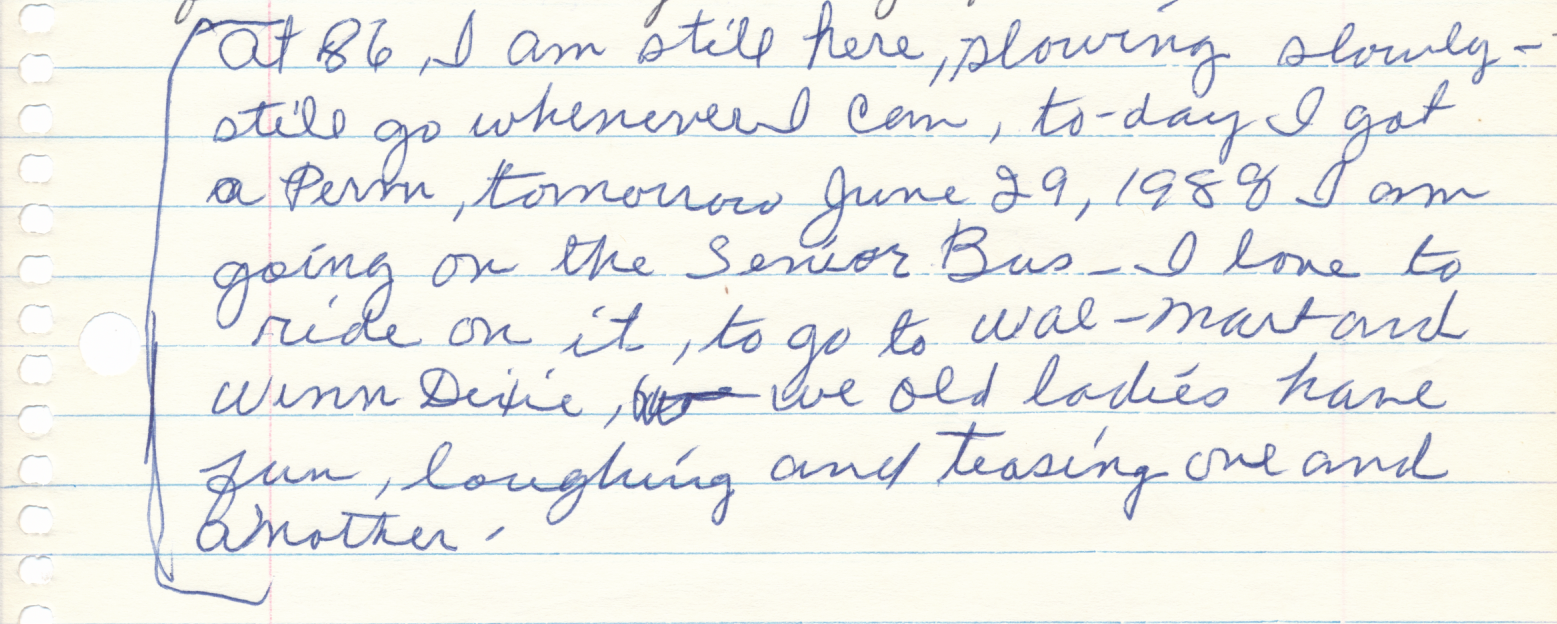 at 86, I am still here, slowing slowly -
still go whenever I can, to-day I got
a Perm, tomorrow June 29, 1988 I am
going on the Senior Bus - I love to
ride on it, to go to Wal-Mart and
Winn Dixie, we old ladies have
fun, loughing and teasing one and
another.